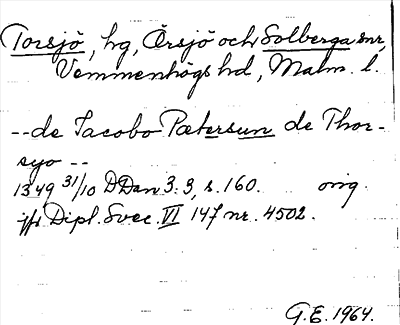 Torsjö, hg, Örsjö och Solberga snr,
Vemmenhögs hd, Malm. l.
-- de Jacobo Pætersun de Thor-
syo --
1349 31/10 DDan 3:3, s. 160. orig.
jfr Dipl. Svec. VI 147 nr. 4502.
G.E. 1964.